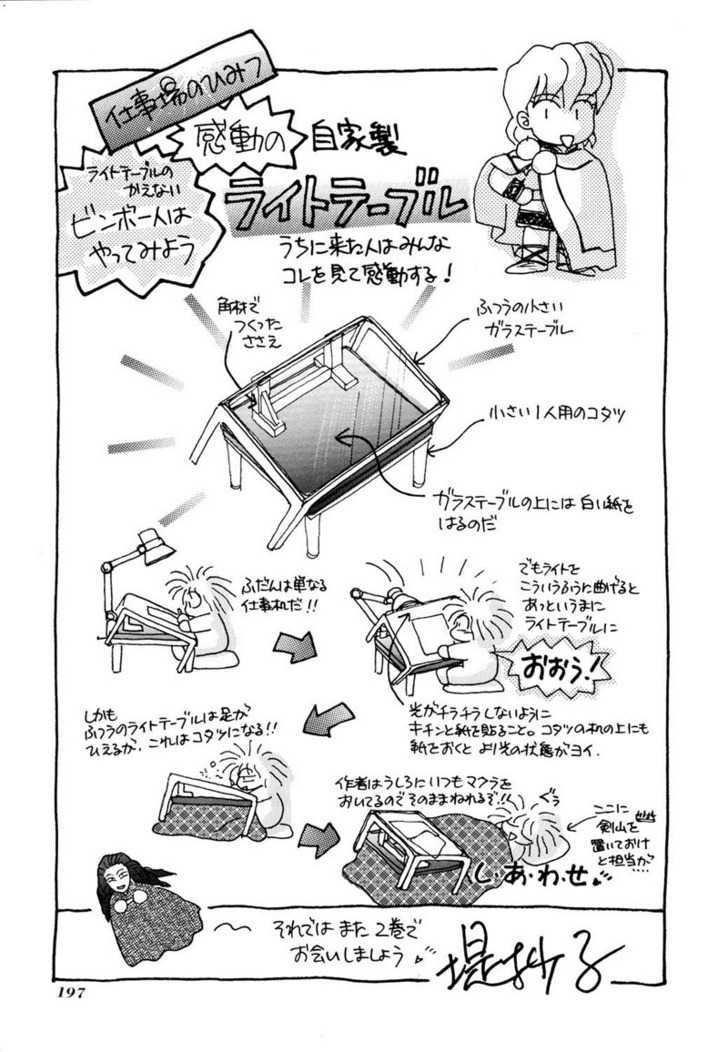 仕事場のひみつ
感動の
自家製
ライトテーブル
ライトテーブルの
かえない
ビンボー人は
やってみよう
うちに来た人はみんな
コレを見て感動する!
角材で
つくった
ささえ
ふつうの小さい
ガラステーブル
小さい1人用のコタツ
ガラステーブルの上には白い紙を
はるのだ
ふだんは単なる
仕事机だ!!
でもライトを
こういうふうに曲げると
あっというまに
ライトテーブルに
おおう!
光がチラチラしないように
キチンと紙を貼ること。コタツの机の上にも
紙をおくとより光の状態がヨイ.
しかも
ふつうのライトテーブルは足が
ひえるが、これはコタツになる!!
作者はうしろにいつもマクラを
おいてるのでそのままねれるぞ!!
ぐう
ここに
剣山を
置いておけ
と担当が
....
し・あ・わ・せ
それではまた2巻で
お会いしましょう
堤抄子
197